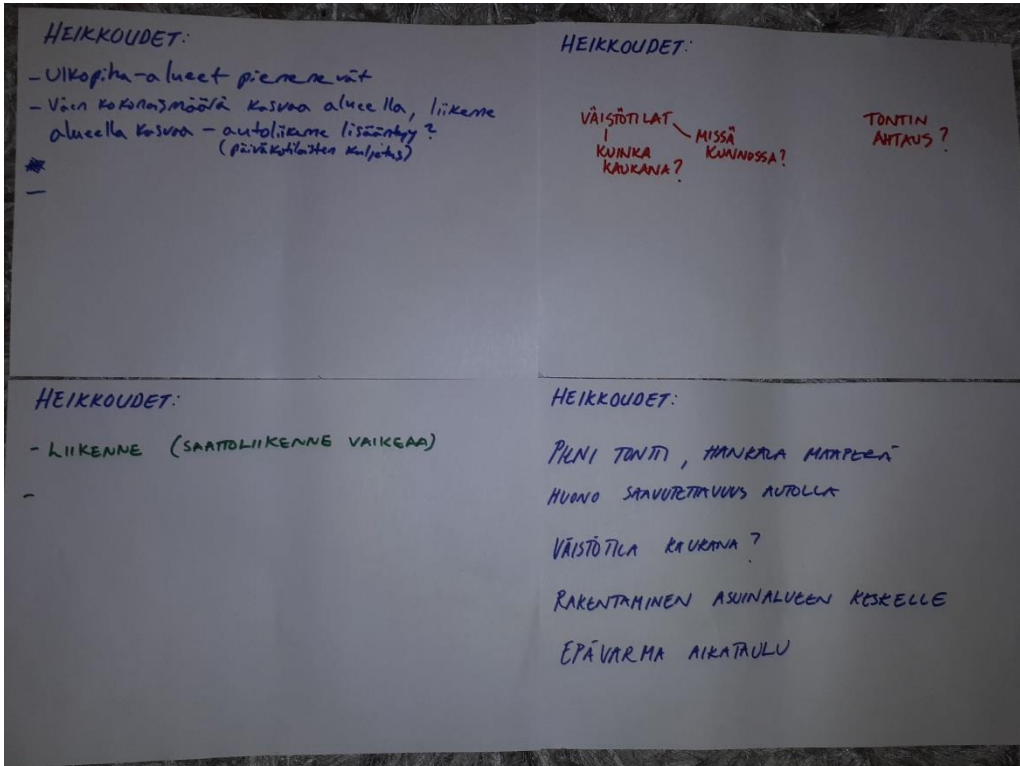 HEIKKOUDET:
- Ulkopiha-alueet pienenevät
- Väen kokonaismäärä kasvaa alueella, liikenne
alueella kasvaa - autoliikenne lisääntyy?
(päiväkotilaisten kuljetus)
-
HEIKKOUDET:
VÄISTÖTILAT
MISSÄ
KUNNOSSA?
KUINKA
KAUKANA?
TONTIN
AHTAUS?
HEIKKOUDET:
- LIIKENNE (SAATTOLIIKENNE VAIKEAA)
-
HEIKKOUDET:
PIENI TONTTI, HANKALA MAAPERÄ
HUONO SAAVUTETTAVUUS AUTOLLA
VÄISTÖTILA KAUKANA?
RAKENTAMINEN ASUINALUEEN KESKELLE
EPÄVARMA AIKATAULU